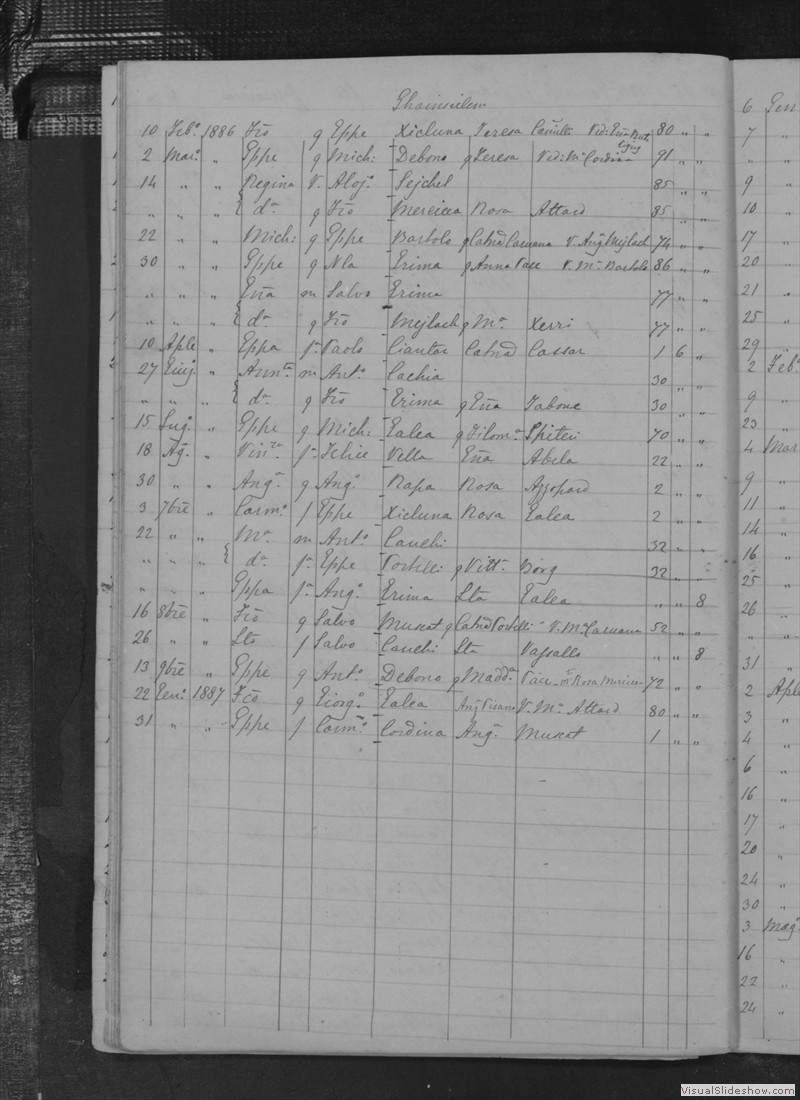 Ghainsielem
10 Feb.º 1886 Fcō g Gppe Xicluna Teresa 80 " "
2 Mar.º " Gppe g Mich: Debono g Teresa Vid: Mª Cordina 91 " "
14 " " Regina V. Aloj.º Sejchel 85 " "
" " " { dª g Fcō Mercieca Rosa Attard 85 " "
22 " " Mich: g Gppe Bartolo g Catnd Caruana V. Angª Mejlach 74 " "
30 " " Gppe g Nla Grima g Anna Pace V. Mª Bartolo 86 " "
" " " Gña m Salvo Grima 77 " "
" " " { dª g Fcō Mejlach g Mª Xerri 77 " "
10 Aple " Gppa fª Paolo Ciantar Catnd Cassar 1 6 "
27 Giug. " Ann.ta m Ant.º Cachia 30 " "
" " " { dª g Fcō Grima g Gña Tabone 30 " "
15 Lug.º " Gppe g Mich: Galea g Filom.ª Spiteri 70 " "
18 Ag.º " Vin.za fª Felice Vella Gña Abela 22 " "
30 " " Ang.ª g Ang.º Rapa Rosa Azzopard 2 " "
3 7bre " Carm.º f Gppe Xicluna Rosa Galea 2 " "
22 " " Mª m Ant.º Cauchi 32 " "
" " " { dª fª Gppe Portelli g Vitt.ª Borg 32 " "
" " " Gppa fª Ang.º Grima Sta Galea " " 8
16 8bre " Fcō g Salvo Muscat g Catnd Portelli V. Mª Caruana 52 " "
26 " " Sto f Salvo Cauchi Sta Vassallo " " 8
13 9bre " Gppe g Ant.º Debono g Madd.ª Pace Rosa 72 " "
22 Gen.º 1887 Fcō g Giorg.º Galea Ang.ª V. Mª Attard 80 " "
31 " " Gppe f Carm.º Cordina Ang.ª Muscat 1 " "
6 Gen
7 "
" "
9 "
10 "
17 "
20 "
21 "
25 "
29 "
2 Feb.º
9 "
23 "
4 Mar
9 "
11 "
14 "
16 "
25 "
26 "
" "
31 "
2 Aple
3 "
4 "
6 "
16 "
17 "
20 "
24 "
30 "
3 Mag.º
16 "
22 "
24 "
VisualSlideshow.com